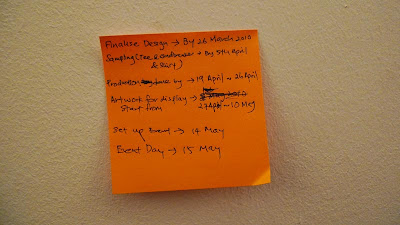 Finalise Design → By 26 March 2010
Sampling (Tee & → By 5th April
& Skirt)
Production by → 19 April ~ 26 April
Artwork for display →
Start from 27 Apr ~ 10 May
Set up Event → 14 May
Event Day → 15 May